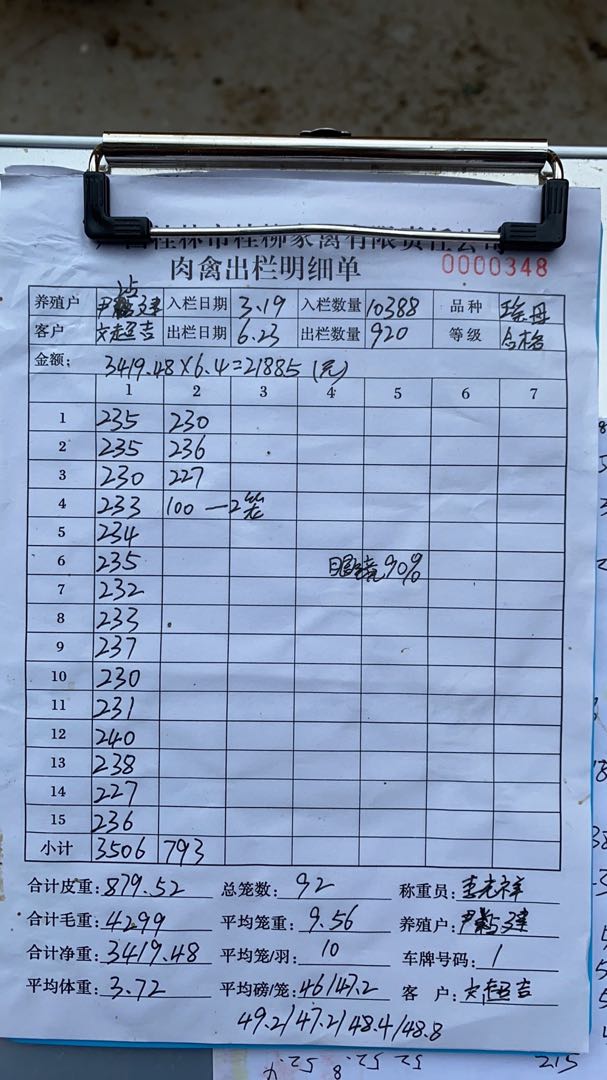 桂林市桂柳家禽有限责任公司
肉禽出栏明细单 0000348
养殖户 入栏日期 3.19 入栏数量 10388 品种
客户 出栏日期 6.23 出栏数量 920 等级 合格
金额: 3419.48×6.4=21885(元)
1 2 3 4 5 6 7
1 235 230
2 235 236
3 230 227
4 233 100 —2笼
5 234
6 235 眼镜90%
7 232
8 233
9 237
10 230
11 231
12 240
13 238
14 227
15 236
小计 3506 793
合计皮重: 879.52 总笼数: 92 称重员:
合计毛重: 4299 平均笼重: 9.56 养殖户:
合计净重: 3419.48 平均笼/羽: 10 车牌号码: 1
平均体重: 3.72 平均磅/笼: 46/47.2 客户:
49.2/47.2/48.4/48.8
52 52.8 52.4 215